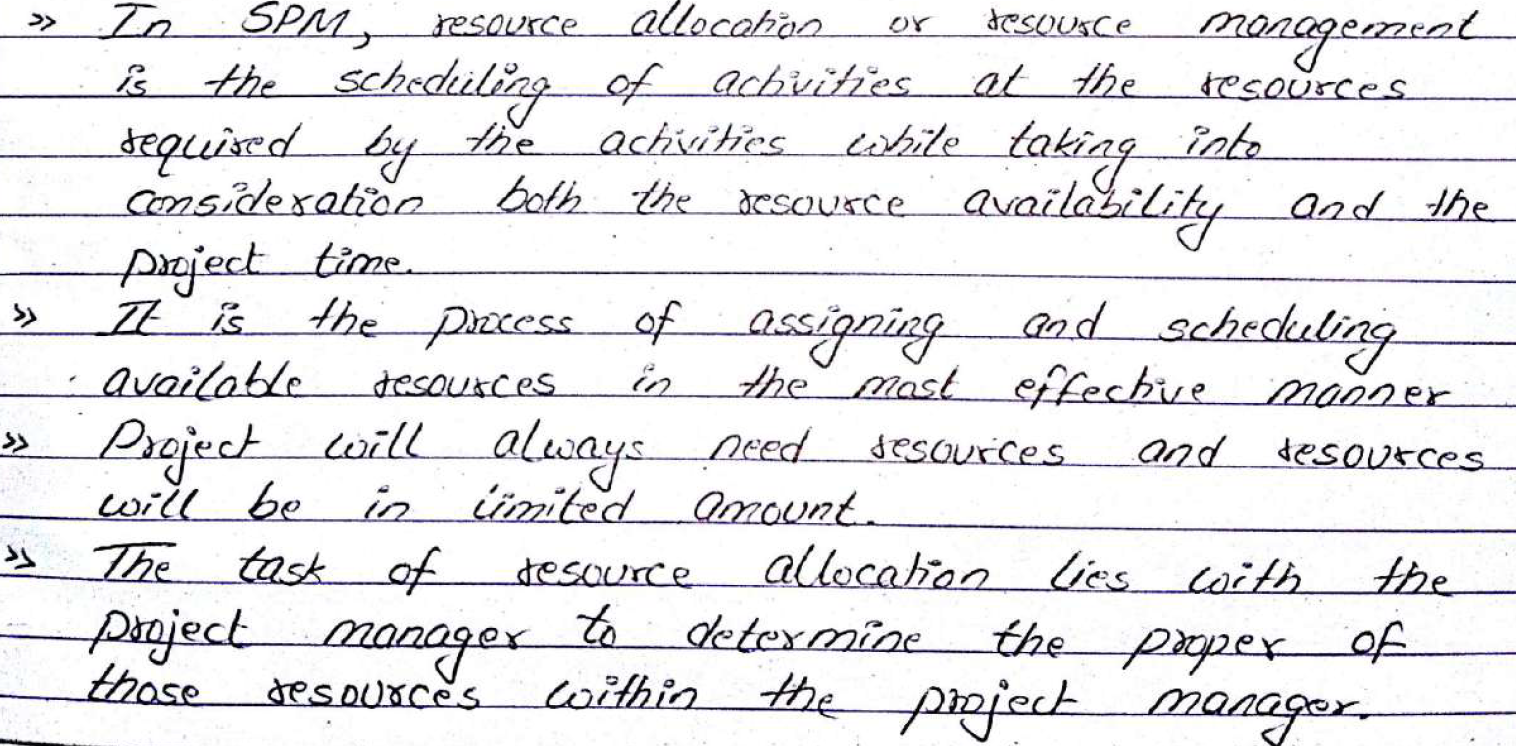 » In SPM, resource allocation or resource management
is the scheduling of activities at the resources
required by the activities while taking into
consideration both the resource availability and the
project time.
» It is the process of assigning and scheduling
available resources in the most effective manner
» Project will always need resources and resources
will be in limited amount.
» The task of resource allocation lies with the
project manager to determine the proper of
those resources within the project manager.